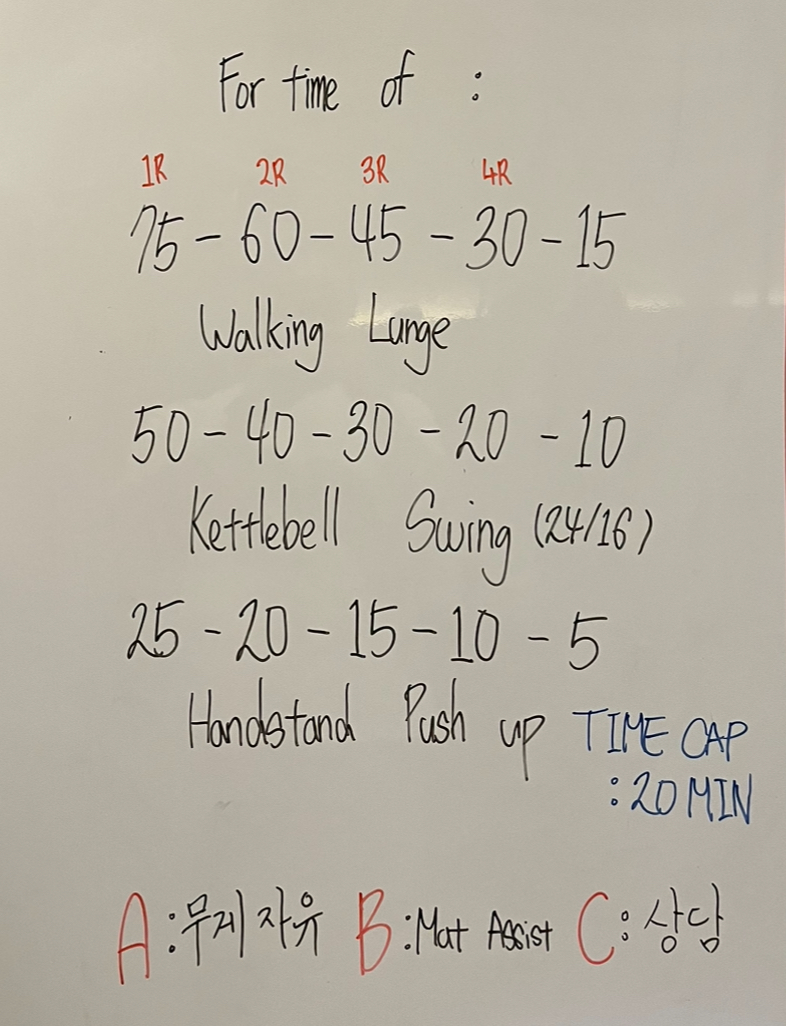 For time of :
1R 2R 3R 4R
75 - 60 - 45 - 30 - 15
Walking Lunge
50 - 40 - 30 - 20 - 10
Kettlebell Swing (24/16)
25 - 20 - 15 - 10 - 5
Handstand Push up TIME CAP
: 20 MIN
A : 무게 자유 B : Mat Assist C : 상담